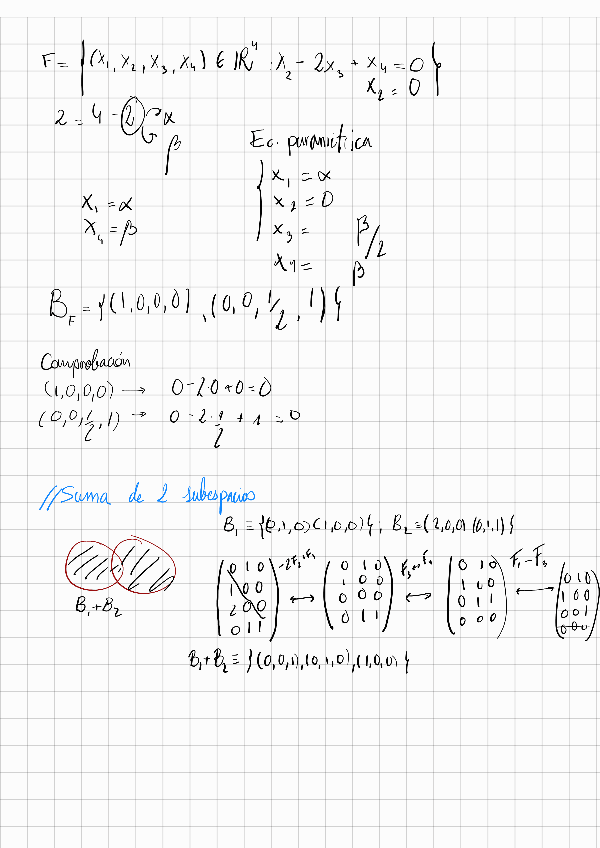 F = { (x₁, x₂, x₃, x₄) ∈ ℝ⁴ : x₂ - 2x₃ + x₄ = 0
x₂ = 0 }
2 = 4 - 2 α
β
Ec. paramétrica
x₁ = α
x₄ = β
{ x₁ = α
x₂ = 0
x₃ = β/2
x₄ = β
B_F = {(1,0,0,0), (0,0,1/2,1)}
Comprobación
(1,0,0,0) → 0-2·0+0=0
(0,0,1/2,1) → 0-2·1/2+1=0
//Suma de 2 subespacios
B₁ = {(0,1,0)(1,0,0)}; B₂ = (2,0,0)(0,1,1)}
B₁+B₂
(0 1 0
1 0 0
2 0 0
0 1 1)
↔
(0 1 0
1 0 0
0 0 0
0 1 1)
F₃↔F₄
↔
(0 1 0
1 0 0
0 1 1
0 0 0)
F₁-F₃
↔
(0 1 0
1 0 0
0 0 1
0 0 0)
B₁+B₂ ≡ {(0,0,1),(0,1,0),(1,0,0)}